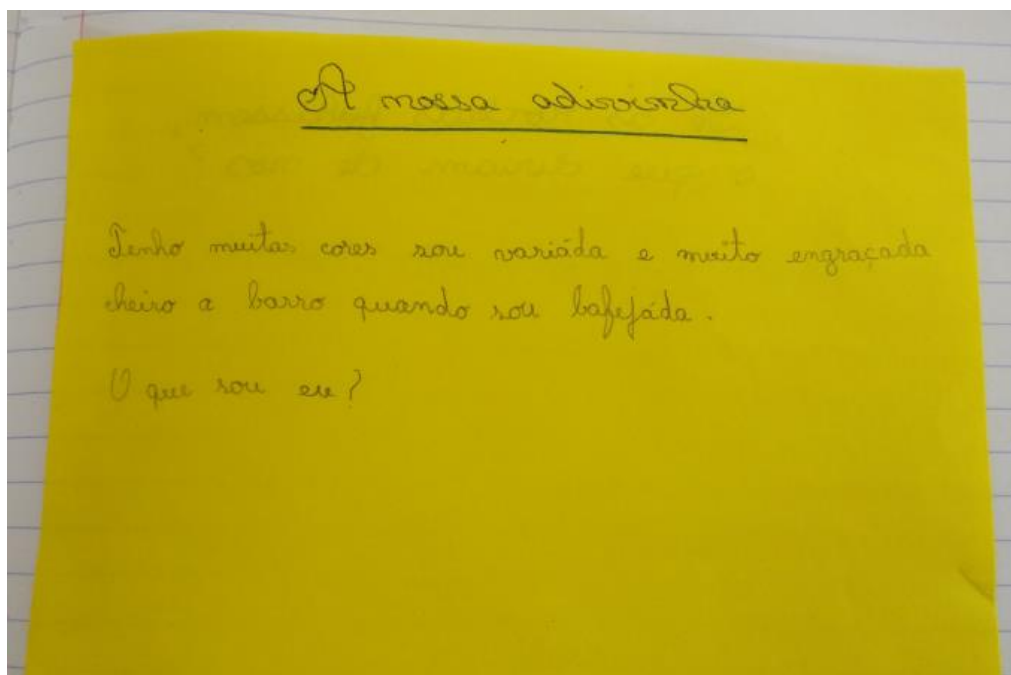 A nossa adivinha
Tenho muitas cores sou variáda e muito engraçada
cheiro a barro quando sou bafejáda.
O que sou eu?